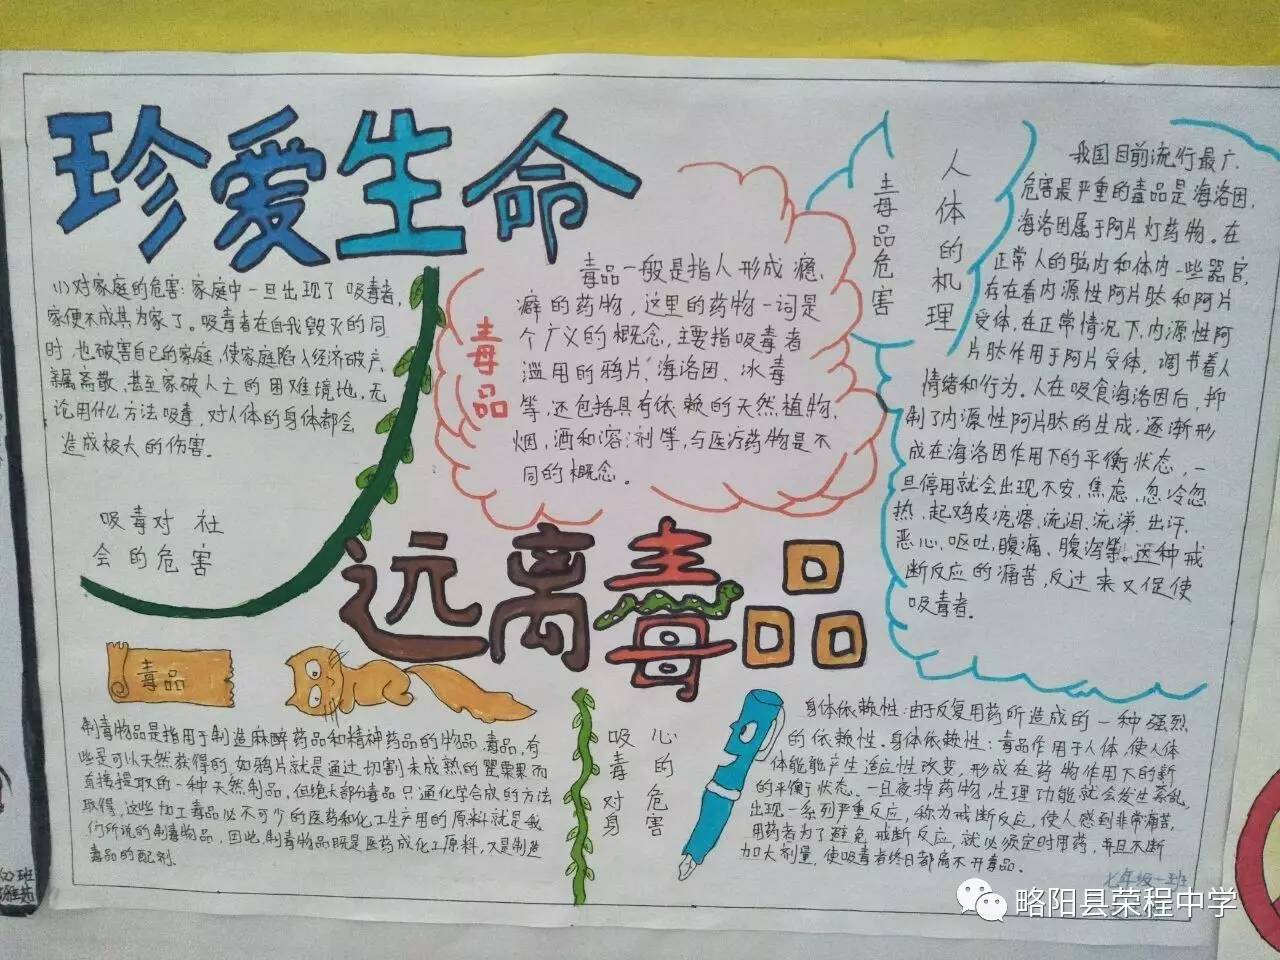 珍爱生命
(1)对家庭的危害:家庭中一旦出现了吸毒者,
家便不成其为家了。吸毒者在自我毁灭的同
时,也破害自己的家庭,使家庭陷入经济破产、
亲属离散、甚至家破人亡的困难境地,无
论用什么方法吸毒,对人体的身体都会
造成极大的伤害。
吸毒对社
会的危害
毒品
毒品一般是指人形成瘾
癖的药物,这里的药物一词是
个广义的概念,主要指吸毒者
滥用的鸦片、海洛因、冰毒
等,还包括具有依赖的天然植物、
烟、酒和溶剂等,与医疗药物是不
同的概念。
毒品危害
人体的机理
我国目前流行最广、
危害最严重的毒品是海洛因,
海洛因属于阿片灯药物。在
正常人的脑内和体内一些器官,
存在着内源性阿片肽和阿片
受体,在正常情况下,内源性阿
片肽作用于阿片受体,调节着人
情绪和行为。人在吸食海洛因后,抑
制了内源性阿片肽的生成,逐渐形
成在海洛因作用下的平衡状态,一
旦停用就会出现不安、焦虑、忽冷忽
热、起鸡皮疙瘩、流泪、流涕、出汗、
恶心、呕吐、腹痛、腹泻等。这种戒
断反应的痛苦,反过来又促使
吸毒者。
远离毒品
毒品
制毒物品是指用于制造麻醉药品和精神药品的物品.毒品,有
些是可以天然获得的,如鸦片就是通过切割未成熟的罂粟果而
直接提取的一种天然制品,但绝大部分毒品只通化学合成的方法
取得,这些加工毒品必不可少的医药和化工生产用的原料就是我
们所说的制毒物品,因此,制毒物品既是医药或化工原料,又是制造
毒品的配剂.
吸毒对身
心的危害
身体依赖性:由于反复用药所造成的一种强烈
的依赖性.身体依赖性:毒品作用于人体,使人体
体能能产生适应性改变,形成在药物作用下的新
的平衡状态。一旦停掉药物,生理功能就会发生紊乱,
出现一系列严重反应,称为戒断反应,使人感到非常痛苦,
用药者为了避免戒断反应,就必须定时用药,并且不断
加大剂量,使吸毒者终日都离不开毒品。
七年级一班
略阳县荣程中学